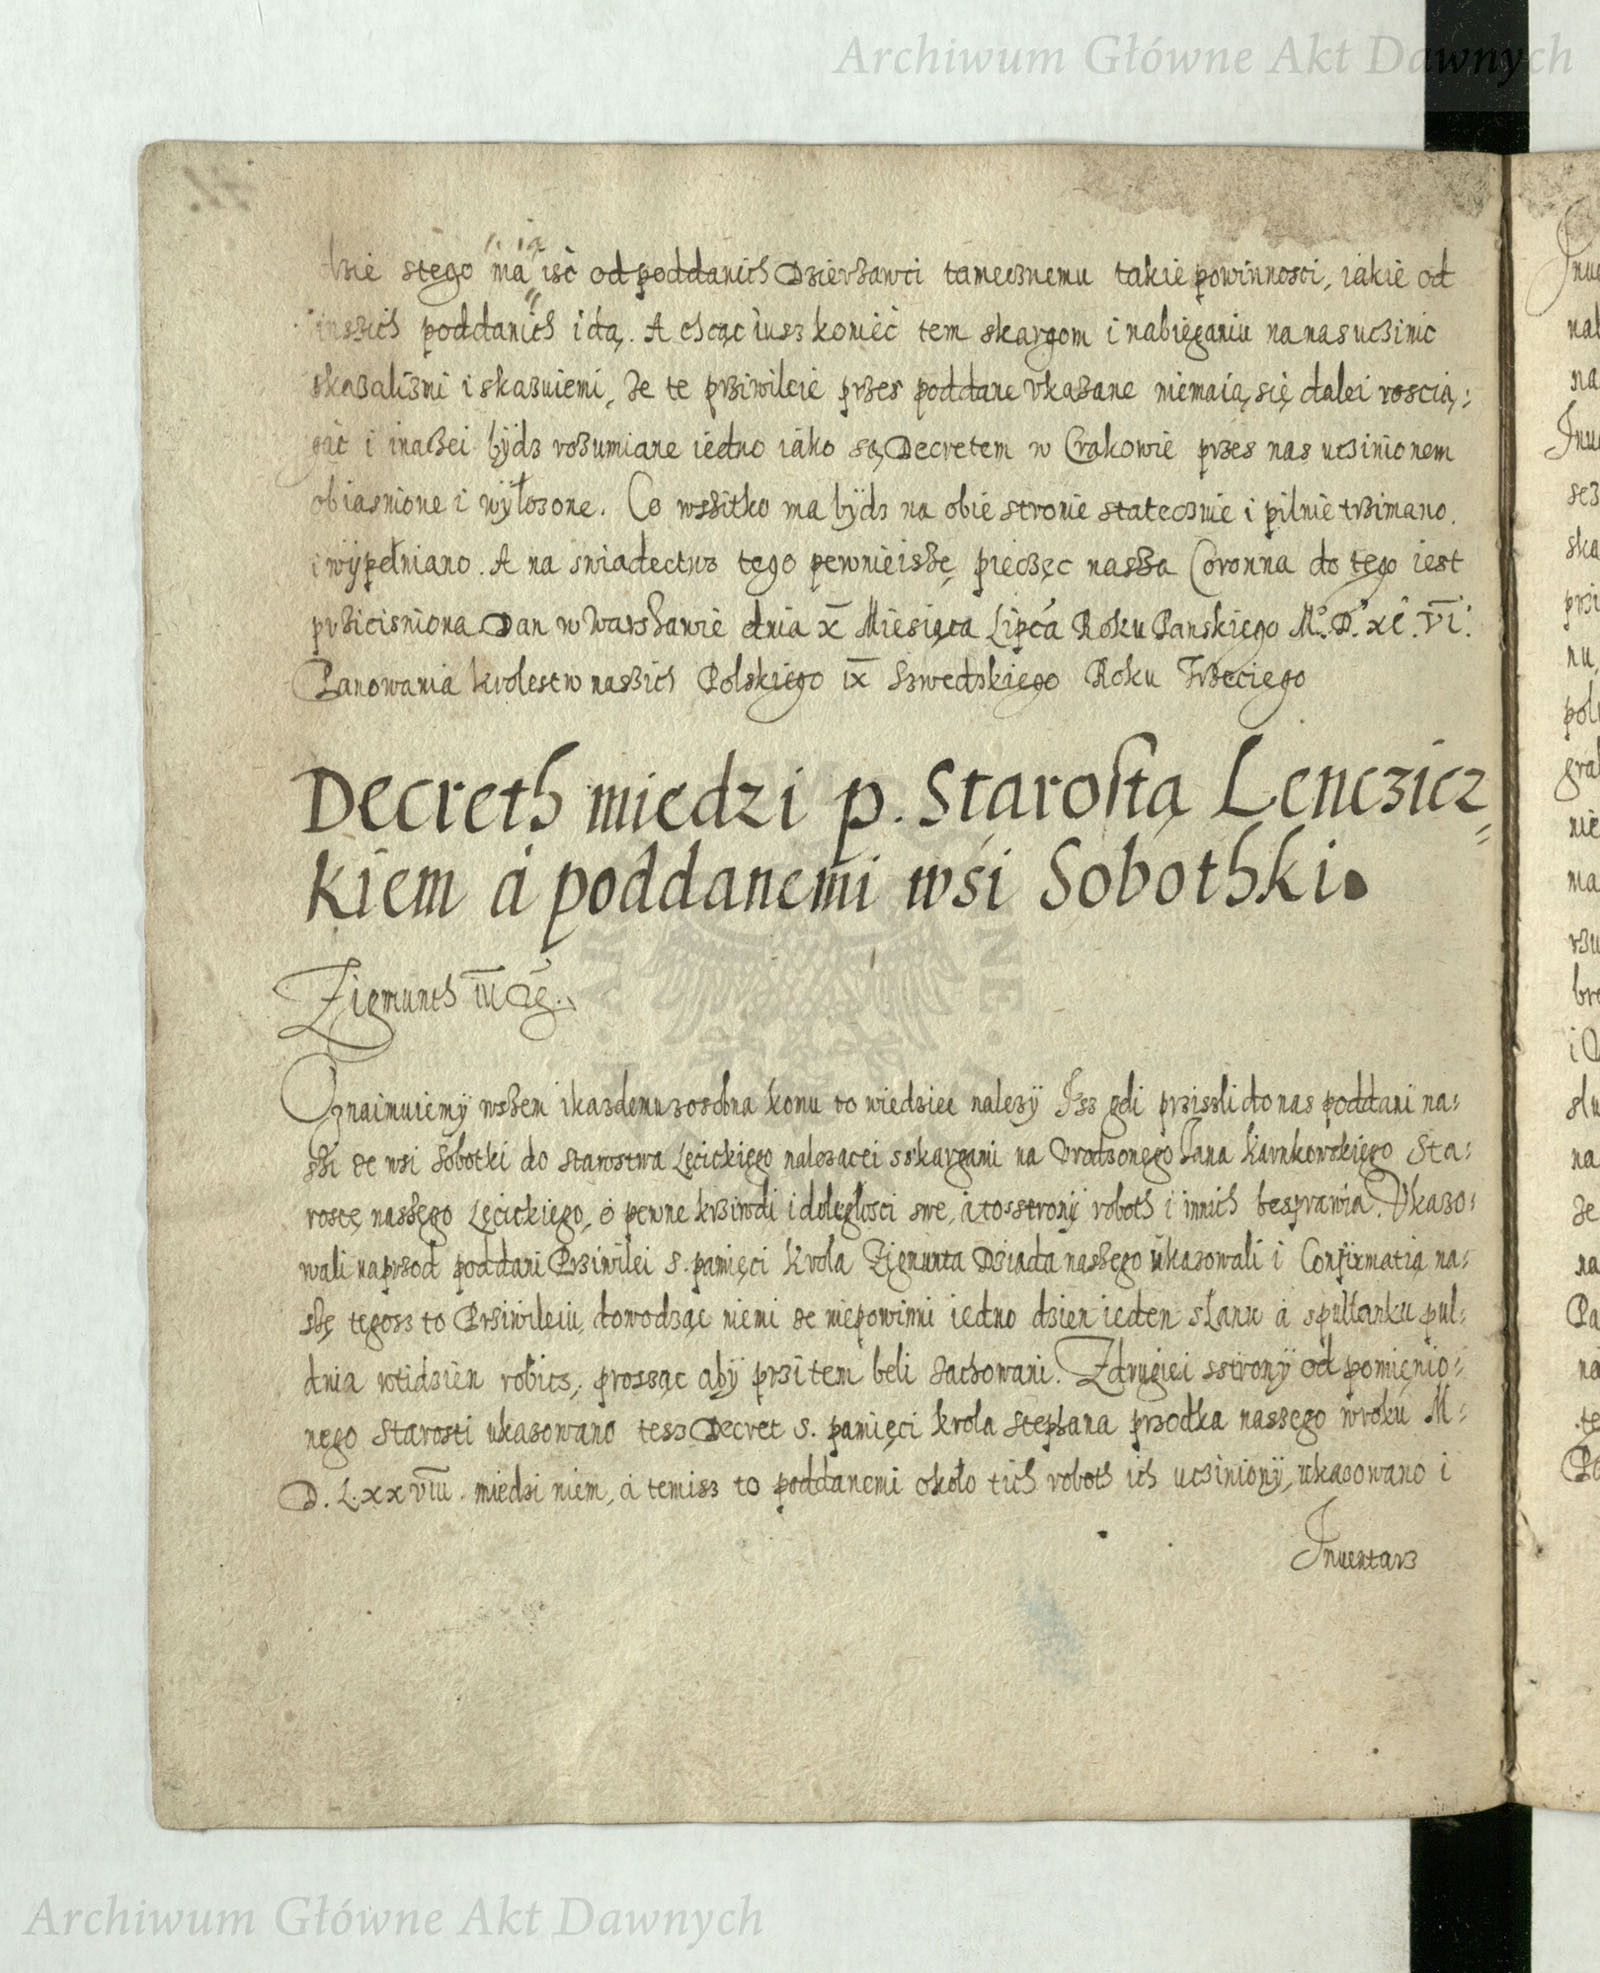 Archiwum Główne Akt Dawnych
dzie stego ma iść od poddanich Dzierzawci tamecznemu takie powinnosci, iakie od
inszich poddanich idą. A chcąc iusz konieć tem skargom i nabieganiu na nas uczinic
skazalismi i skazuiemi, ze te prziwileie przes poddane vkazane niemaią się dalei roscią:
gać i inaszei bydz rozumiane iedno iako są Decretem w Crakowie przes nas uczinionem
obiasnione i wyłozone. Co wszitko ma bydz na obie stronie statecznie i pilnie trzimano
i wypełniano. A na sniadectwo tego pewnieiszę pieczęc nasza Coronna do tego iest
prziciśniona Dan w Warszawie dnia X Miesiąca Lipca Roku Panskiego M.D.XC.VI.
Panowania krolestw naszich Polskiego IX Szwedskiego Roku Trzeciego
Decreth miedzi p. Starostą Lenczicz=
kiem a poddanemi wsi Sobothki.
Zigmunth III
Oznaimuiemy wszem i kazdemu zosobna komu to wiedziec nalezy Isz gdi prziszli do nas poddani na:
szi ze wsi Sobotki do starostwa Lęcickiego nalezacei s skargami na Urodzonego Jana Karnkowskiego Sta:
rostę naszego Lęcickiego, o pewne krziwdi i doległosci swe, a to sstrony roboth i innich besprawia. Vkazo:
wali naprzod poddani Prziwilei s. pamięci krola Zigmunta Dziada naszego ukazowali i Confirmatią na:
szę tegosz to Prziwileiu, dowodząc niemi ze niepowinni iedno dzien ieden słanu a spułłanku puł:
dnia wtidzien robicz, prosząc aby przitem beli zachowani. Zdrugiei sstrony od pomięnio:
nego Starosti ukazowano tesz Decret s. pamięci krola Stephana przodka naszego w roku M:
D.LXXVIII. miedzi niem, a temisz to poddanemi około tich roboth ich ucziniony, ukazowano i
Inuentarz
Archiwum Główne Akt Dawnych